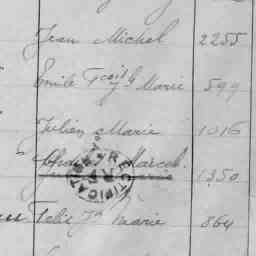 Jean Michel 2255
Emile Fçois J. Marie 599
Julien Marie 1016
Marcel 1350
Felix Jn Marie 864